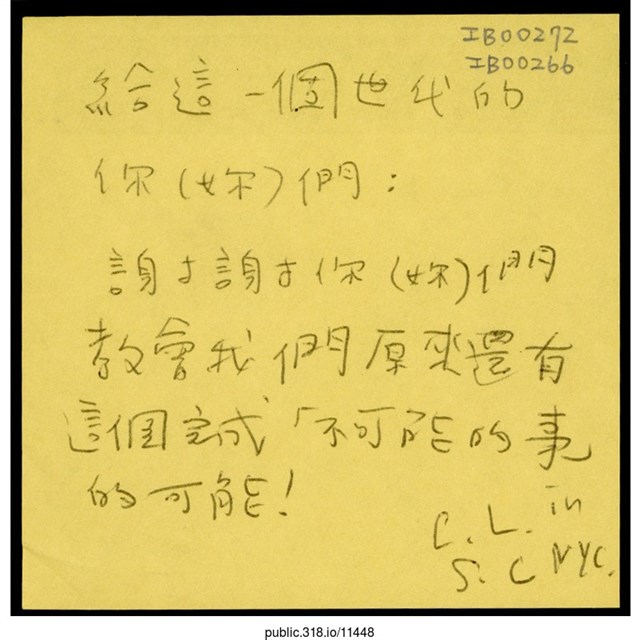 IB00272
IB00266
給這一個世代的
你(妳)們:
謝謝你(妳)們
教會我們原來還有
這個完成「不可能的事
的可能!
C. L. in
S. C NYC.
public.318.io/11448